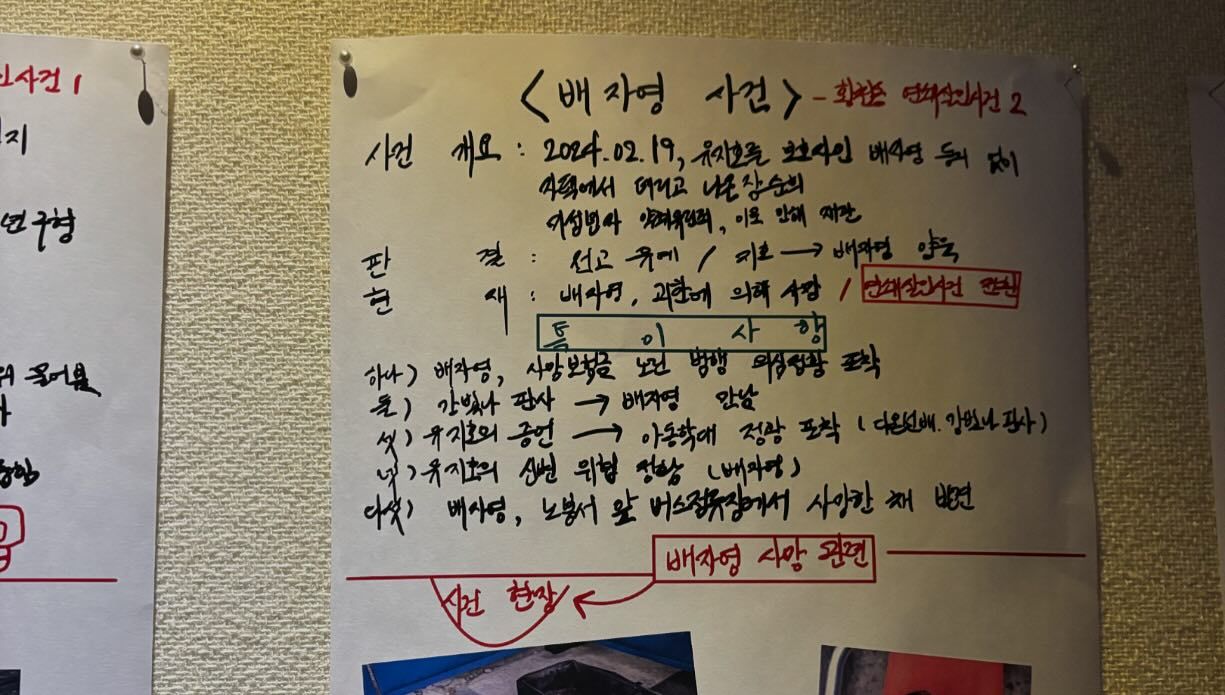 사건 1
지
년 구형
<배자영 사건> - 황천순 연쇄살인사건 2
사건 개요 : 2024.02.19, 유지호를 보호자인 배자영 동의 없이
자택에서 데리고 나온 장순의
미성년자 약취유인죄, 이로 인해 재판
판 결 : 선고 유예 / 지호 → 배자영 양육
현 재 : 배자영, 괴한에 의해 사망 / 연쇄살인사건 판단
특 이 사 항
하나) 배자영, 사망보험금 노린 범행 의심정황 포착
둘) 강빛나 판사 → 배자영 만남
셋) 유지호의 증언 → 아동학대 정황 포착 (다온선배, 강빛나 판사)
넷) 유지호의 신변 위협 정황 (배자영)
다섯) 배자영, 노봉서 앞 버스정류장에서 사망한 채 발견
배자영 사망 관련
사건 현장